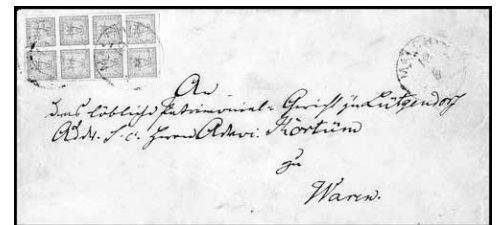 An
das löbliche Patrimonial-Gericht zu Lütgendorf
Adr. S. c. Herrn Advoc. Kortüm
zu
Waren.
MALCHIN